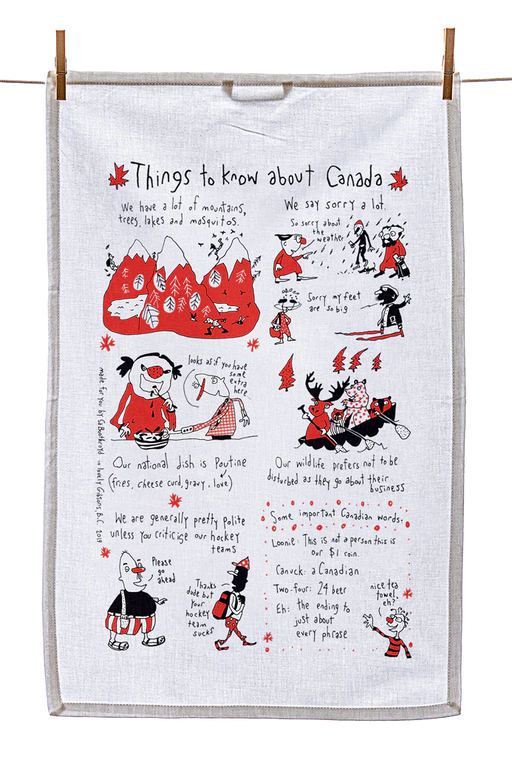 Things to know about Canada
We have a lot of mountains,
trees, lakes and mosquitos.
We say sorry a lot.
So sorry about
the
weather
Sorry my feet
are so big
looks as if you have
some
extra
here
Our national dish is Poutine
(fries, cheese curd, gravy, love)
Our wildlife prefers not to be
disturbed as they go about their
business
We are generally pretty polite
unless you criticize our hockey
teams
Please
go
ahead
Thanks
dude but
your
hockey
team
sucks
Some important Canadian words.
Loonie: This is not a person this is
our $1 coin.
Canuck: a Canadian
Two-four: 24 beer
Eh: the ending to
just about
every phrase
nice tea
towel
eh?
made for you by in lovely Gibsons, B.C.